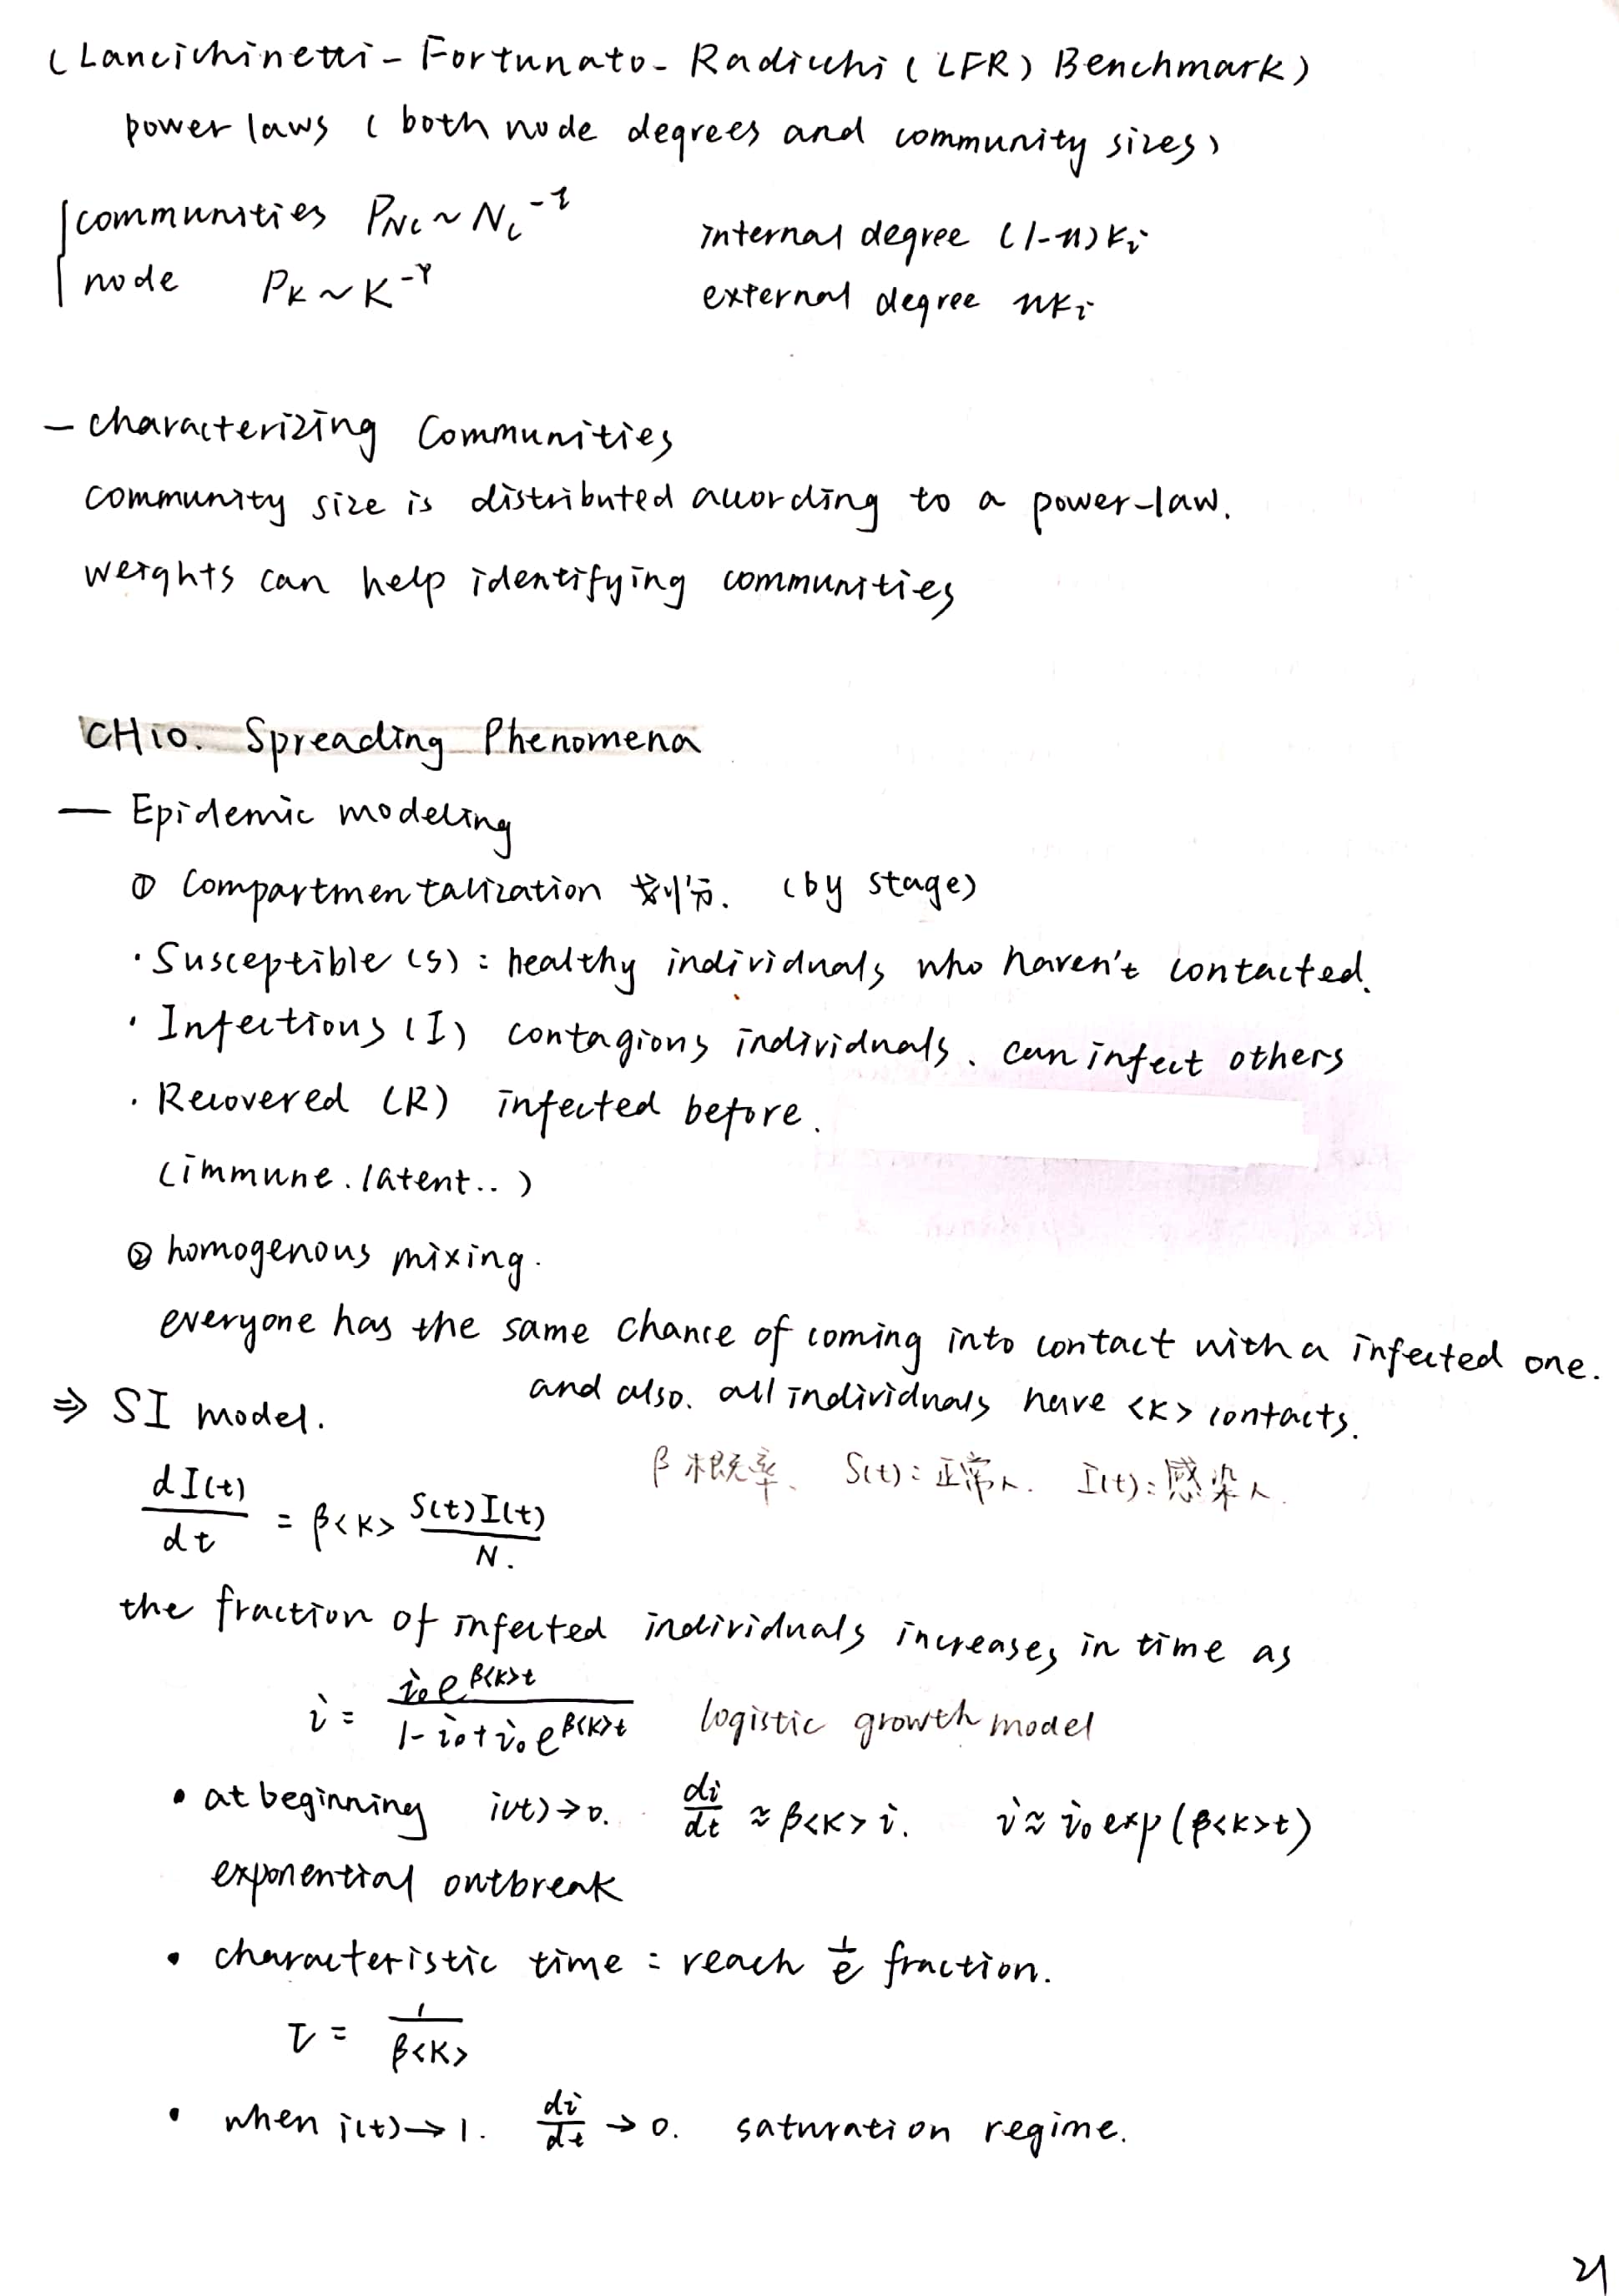 (Lancichinetti-Fortunato-Radicchi (LFR) Benchmark)
power laws (both node degrees and community sizes)
communities P_{Nc} ~ N_c^{-ζ} internal degree (1-μ)k_i
node P_K ~ K^{-γ} external degree μk_i
— characterizing Communities
community size is distributed according to a power-law.
weights can help identifying communities
CH10. Spreading Phenomena
— Epidemic modeling
① Compartmentalization 划分. (by stage)
· Susceptible (S): healthy individuals who haven't contacted.
· Infectious (I) contagions individuals. can infect others
· Recovered (R) infected before.
(immune. latent..)
② homogenous mixing.
everyone has the same chance of coming into contact with a infected one.
and also. all individuals have <K> contacts.
⇒ SI model.
β 概率、 S(t): 正常人. I(t): 感染人.
dI(t)/dt = β<K> S(t)I(t)/N.
the fraction of infected individuals increases in time as
i = i₀e^{β<K>t} / (1-i₀+i₀e^{β<K>t}) logistic growth model
• at beginning i(t)→0. di/dt ≈ β<K>i. i ≈ i₀ exp(β<K>t)
exponential outbreak
• characteristic time: reach 1/e fraction.
τ = 1/β<K>
• when i(t)→1. di/dt → 0. saturation regime.
21